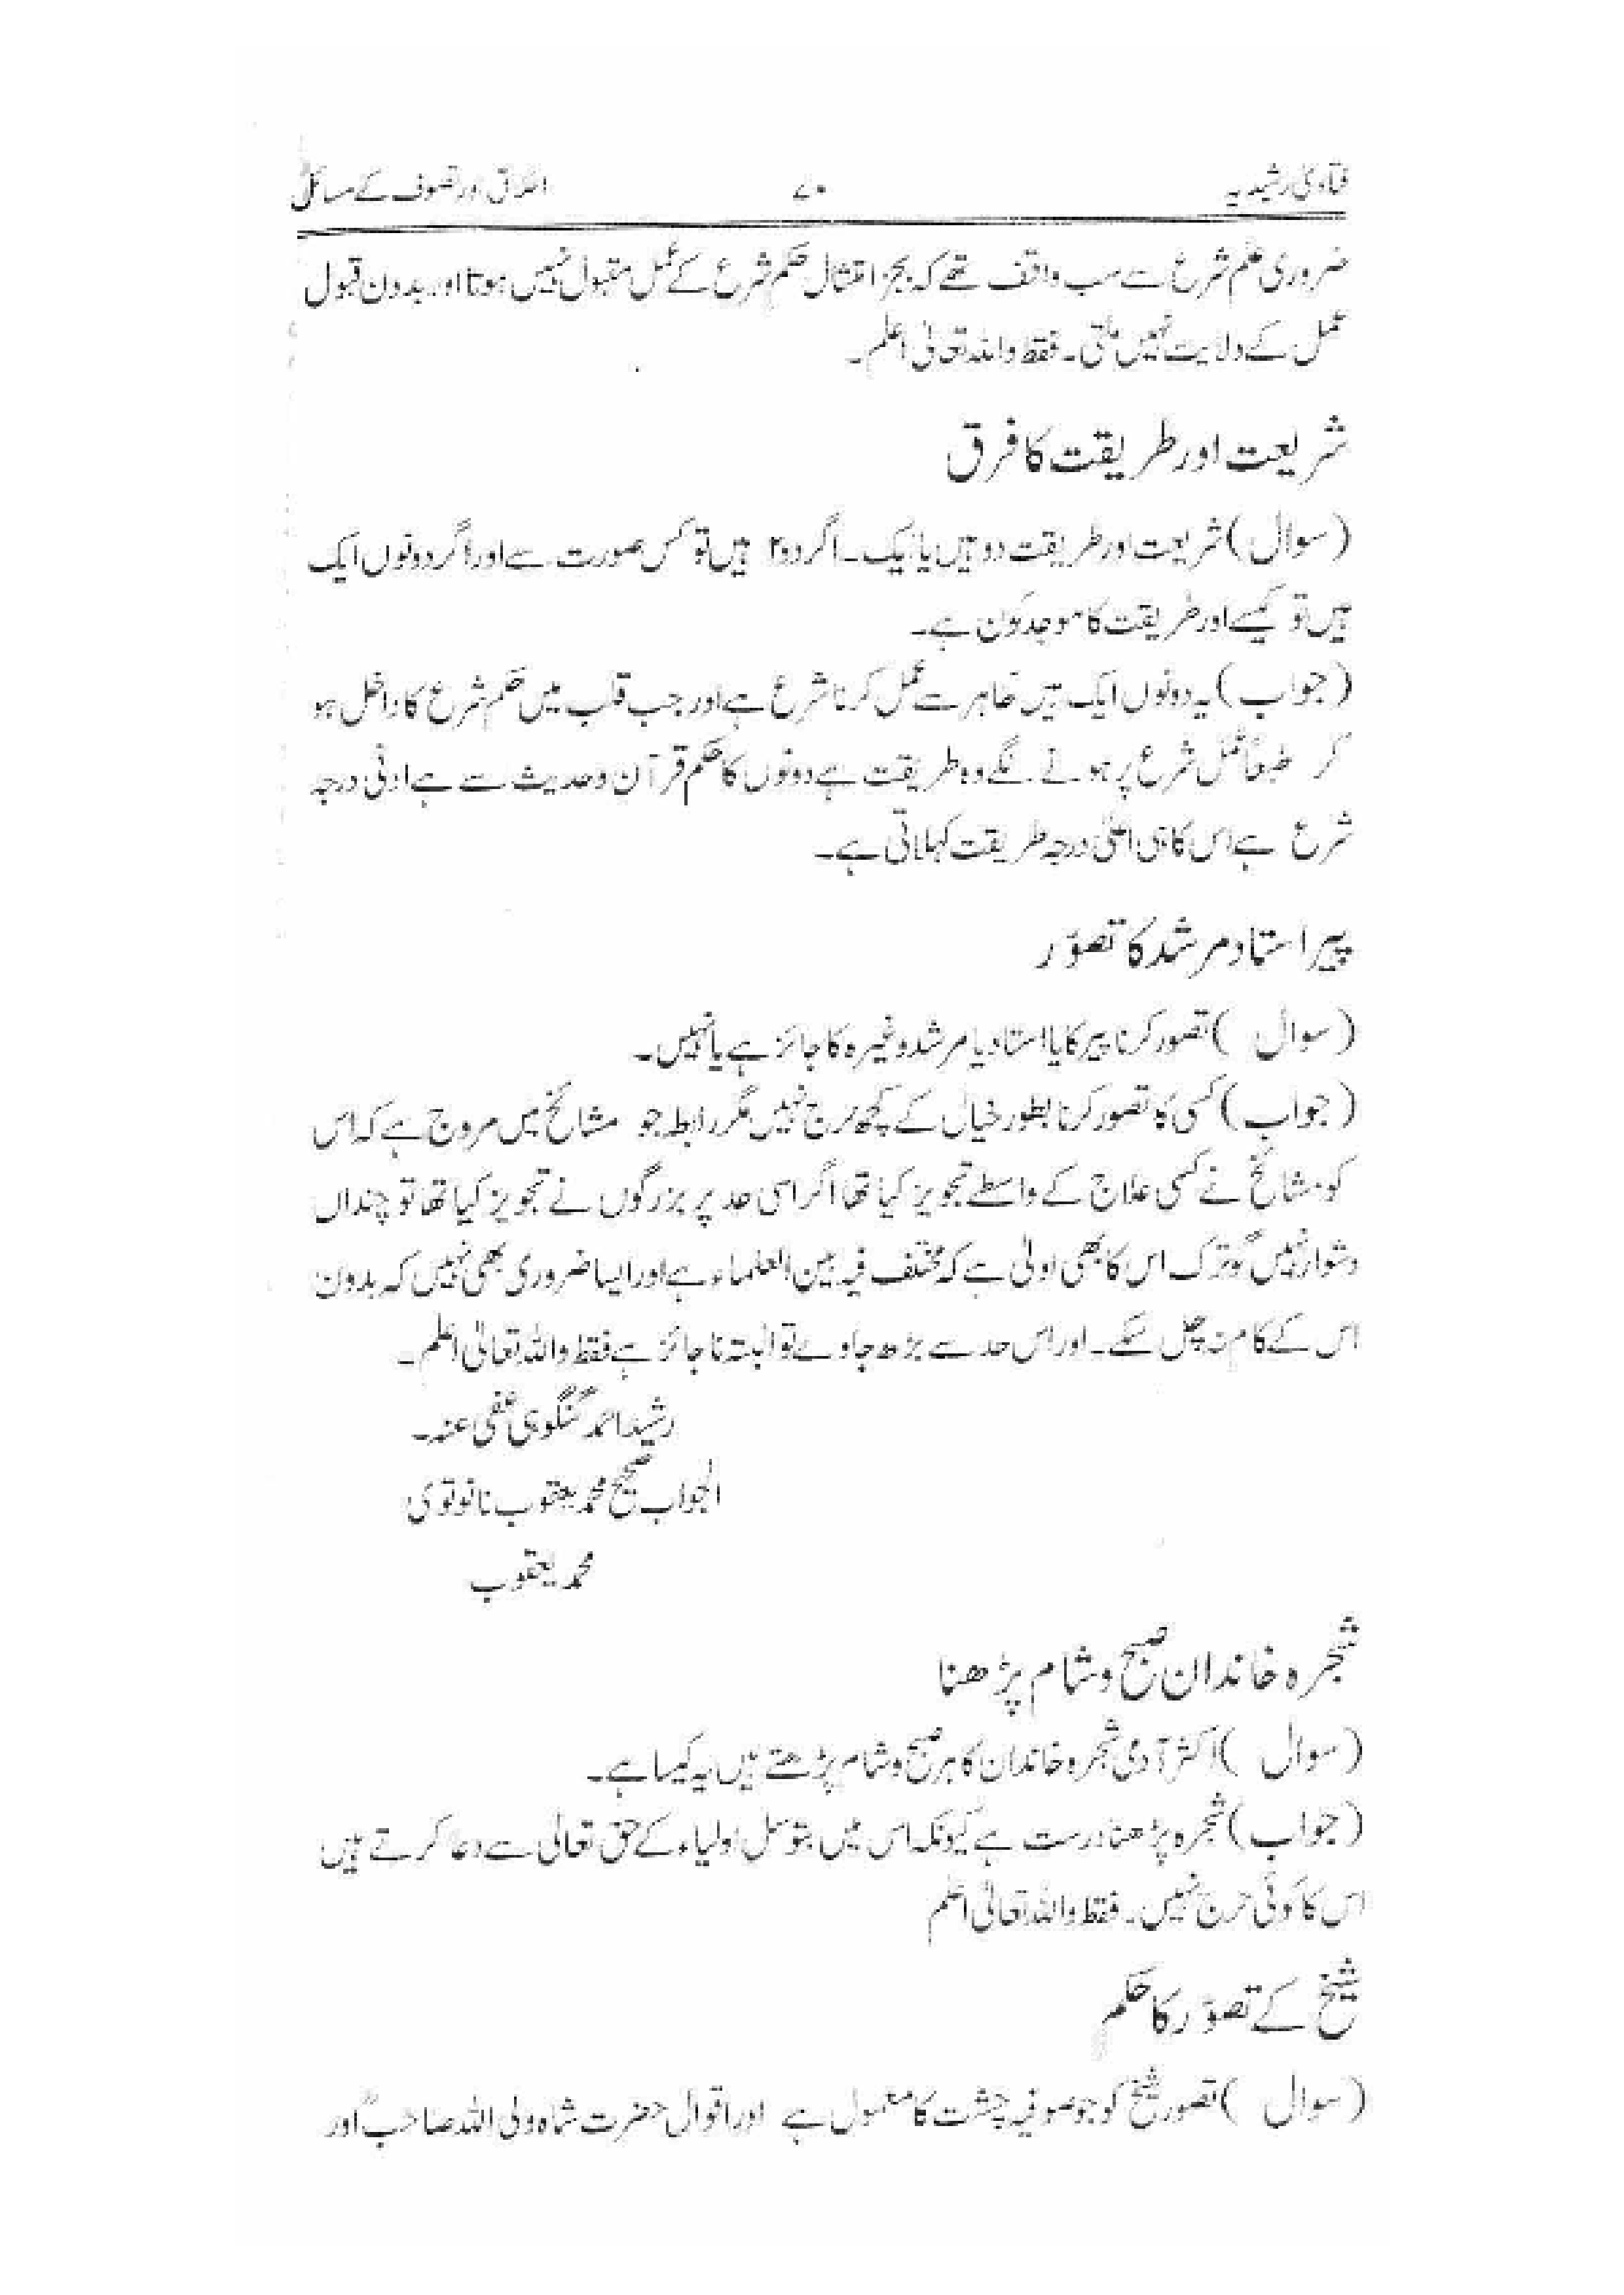 فتاویٰ رشیدیہ ۷۰ اخلاق اور تصوف کے مسائل
ضروری علم شرع سے سب واقف تھے کہ بجز امتثال حکم شرع کے عمل مقبول نہیں ہوتا اور بدون قبول
عمل کے ولایت نہیں ملتی۔ فقط واللہ تعالیٰ اعلم۔
شریعت اور طریقت کا فرق
(سوال) شریعت اور طریقت دو ہیں یا ایک۔ اگر دو۲ ہیں تو کس صورت سے اور اگر دونوں ایک
ہیں تو کیسے اور طریقت کا موجد کون ہے۔
(جواب) یہ دونوں ایک ہیں ظاہر سے عمل کرنا شرع ہے اور جب قلب میں حکم شرع کا داخل ہو
کر طبعاً عمل شرع پر ہونے لگے وہ طریقت ہے دونوں کا حکم قرآن وحدیث سے ہے ادنیٰ درجہ
شرع ہے اس کا ہی اعلیٰ درجہ طریقت کہلاتی ہے۔
پیر استاد مرشد کا تصوّر
(سوال ) تصور کرنا پیر کا یا استاد یا مرشد وغیرہ کا جائز ہے یا نہیں۔
(جواب) کسی کا تصور کرنا بطور خیال کے کچھ حرج نہیں مگر رابطہ جو مشائخ میں مروج ہے کہ اس
کو مشائخ نے کسی علاج کے واسطے تجویز کیا تھا اگر اسی حد پر بزرگوں نے تجویز کیا تھا تو چنداں
دشوار نہیں گو ترک اس کا بھی اولیٰ ہے کہ مختلف فیہ بین العلماء ہے اور ایسا ضروری بھی نہیں کہ بدون
اس کے کام نہ چل سکے۔ اور اس حد سے بڑھ جاوے تو البتہ نا جائز ہے فقط واللہ تعالیٰ اعلم۔
رشید احمد گنگوہی عفی عنہ۔
الجواب صحیح محمد یعقوب نانوتوی
محمد یعقوب
شجرہ خاندان صبح و شام پڑھنا
(سوال ) اکثر آدمی شجرہ خاندان کا ہر صبح و شام پڑھتے ہیں یہ کیسا ہے۔
(جواب) شجرہ پڑھنا درست ہے کیونکہ اس میں بتوسل اولیاء کے حق تعالیٰ سے دعا کرتے ہیں
اس کا کوئی حرج نہیں۔ فقط واللہ تعالیٰ اعلم
شیخ کے تصوّر کا حکم
(سوال ) تصور شیخ کو جو صوفیہ چشت کا معمول ہے اور اقوال حضرت شاہ ولی اللہ صاحبؒ اور